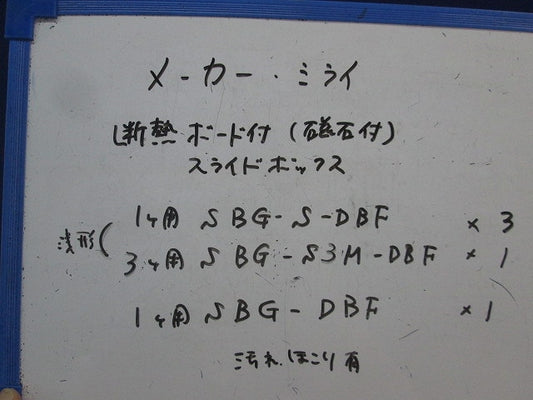 メーカー・ミライ
断熱ボード付(磁石付)
スライドボックス
浅形(1ヶ用 SBG-S-DBF ×3
3ヶ用 SBG-S3M-DBF ×1
1ヶ用 SBG-DBF ×1
汚れ、ほこり有